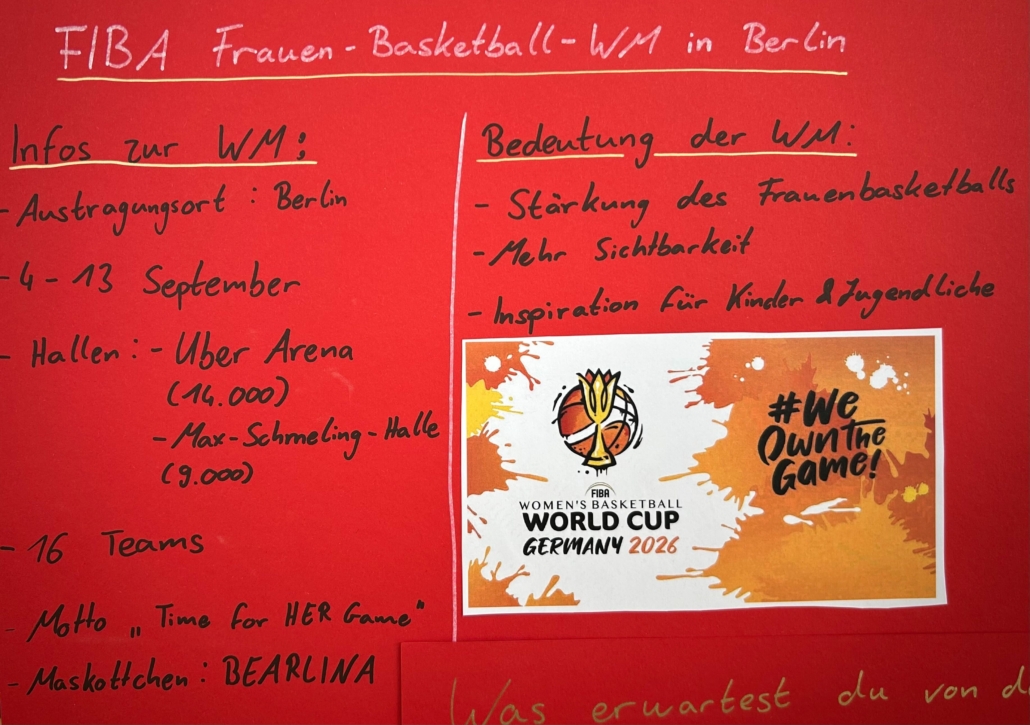 FIBA Frauen-Basketball-WM in Berlin
Infos zur WM:
- Austragungsort : Berlin
- 4 - 13 September
- Hallen : - Uber Arena
(14.000)
- Max-Schmeling-Halle
(9.000)
- 16 Teams
- Motto „Time for HER Game“
- Maskottchen : BEARLINA
Bedeutung der WM:
- Stärkung des Frauenbasketballs
- Mehr Sichtbarkeit
- Inspiration für Kinder & Jugendliche
FIBA
WOMEN'S BASKETBALL
WORLD CUP
GERMANY 2026
#WE
OWN THE
GAME!
Was erwartest du von